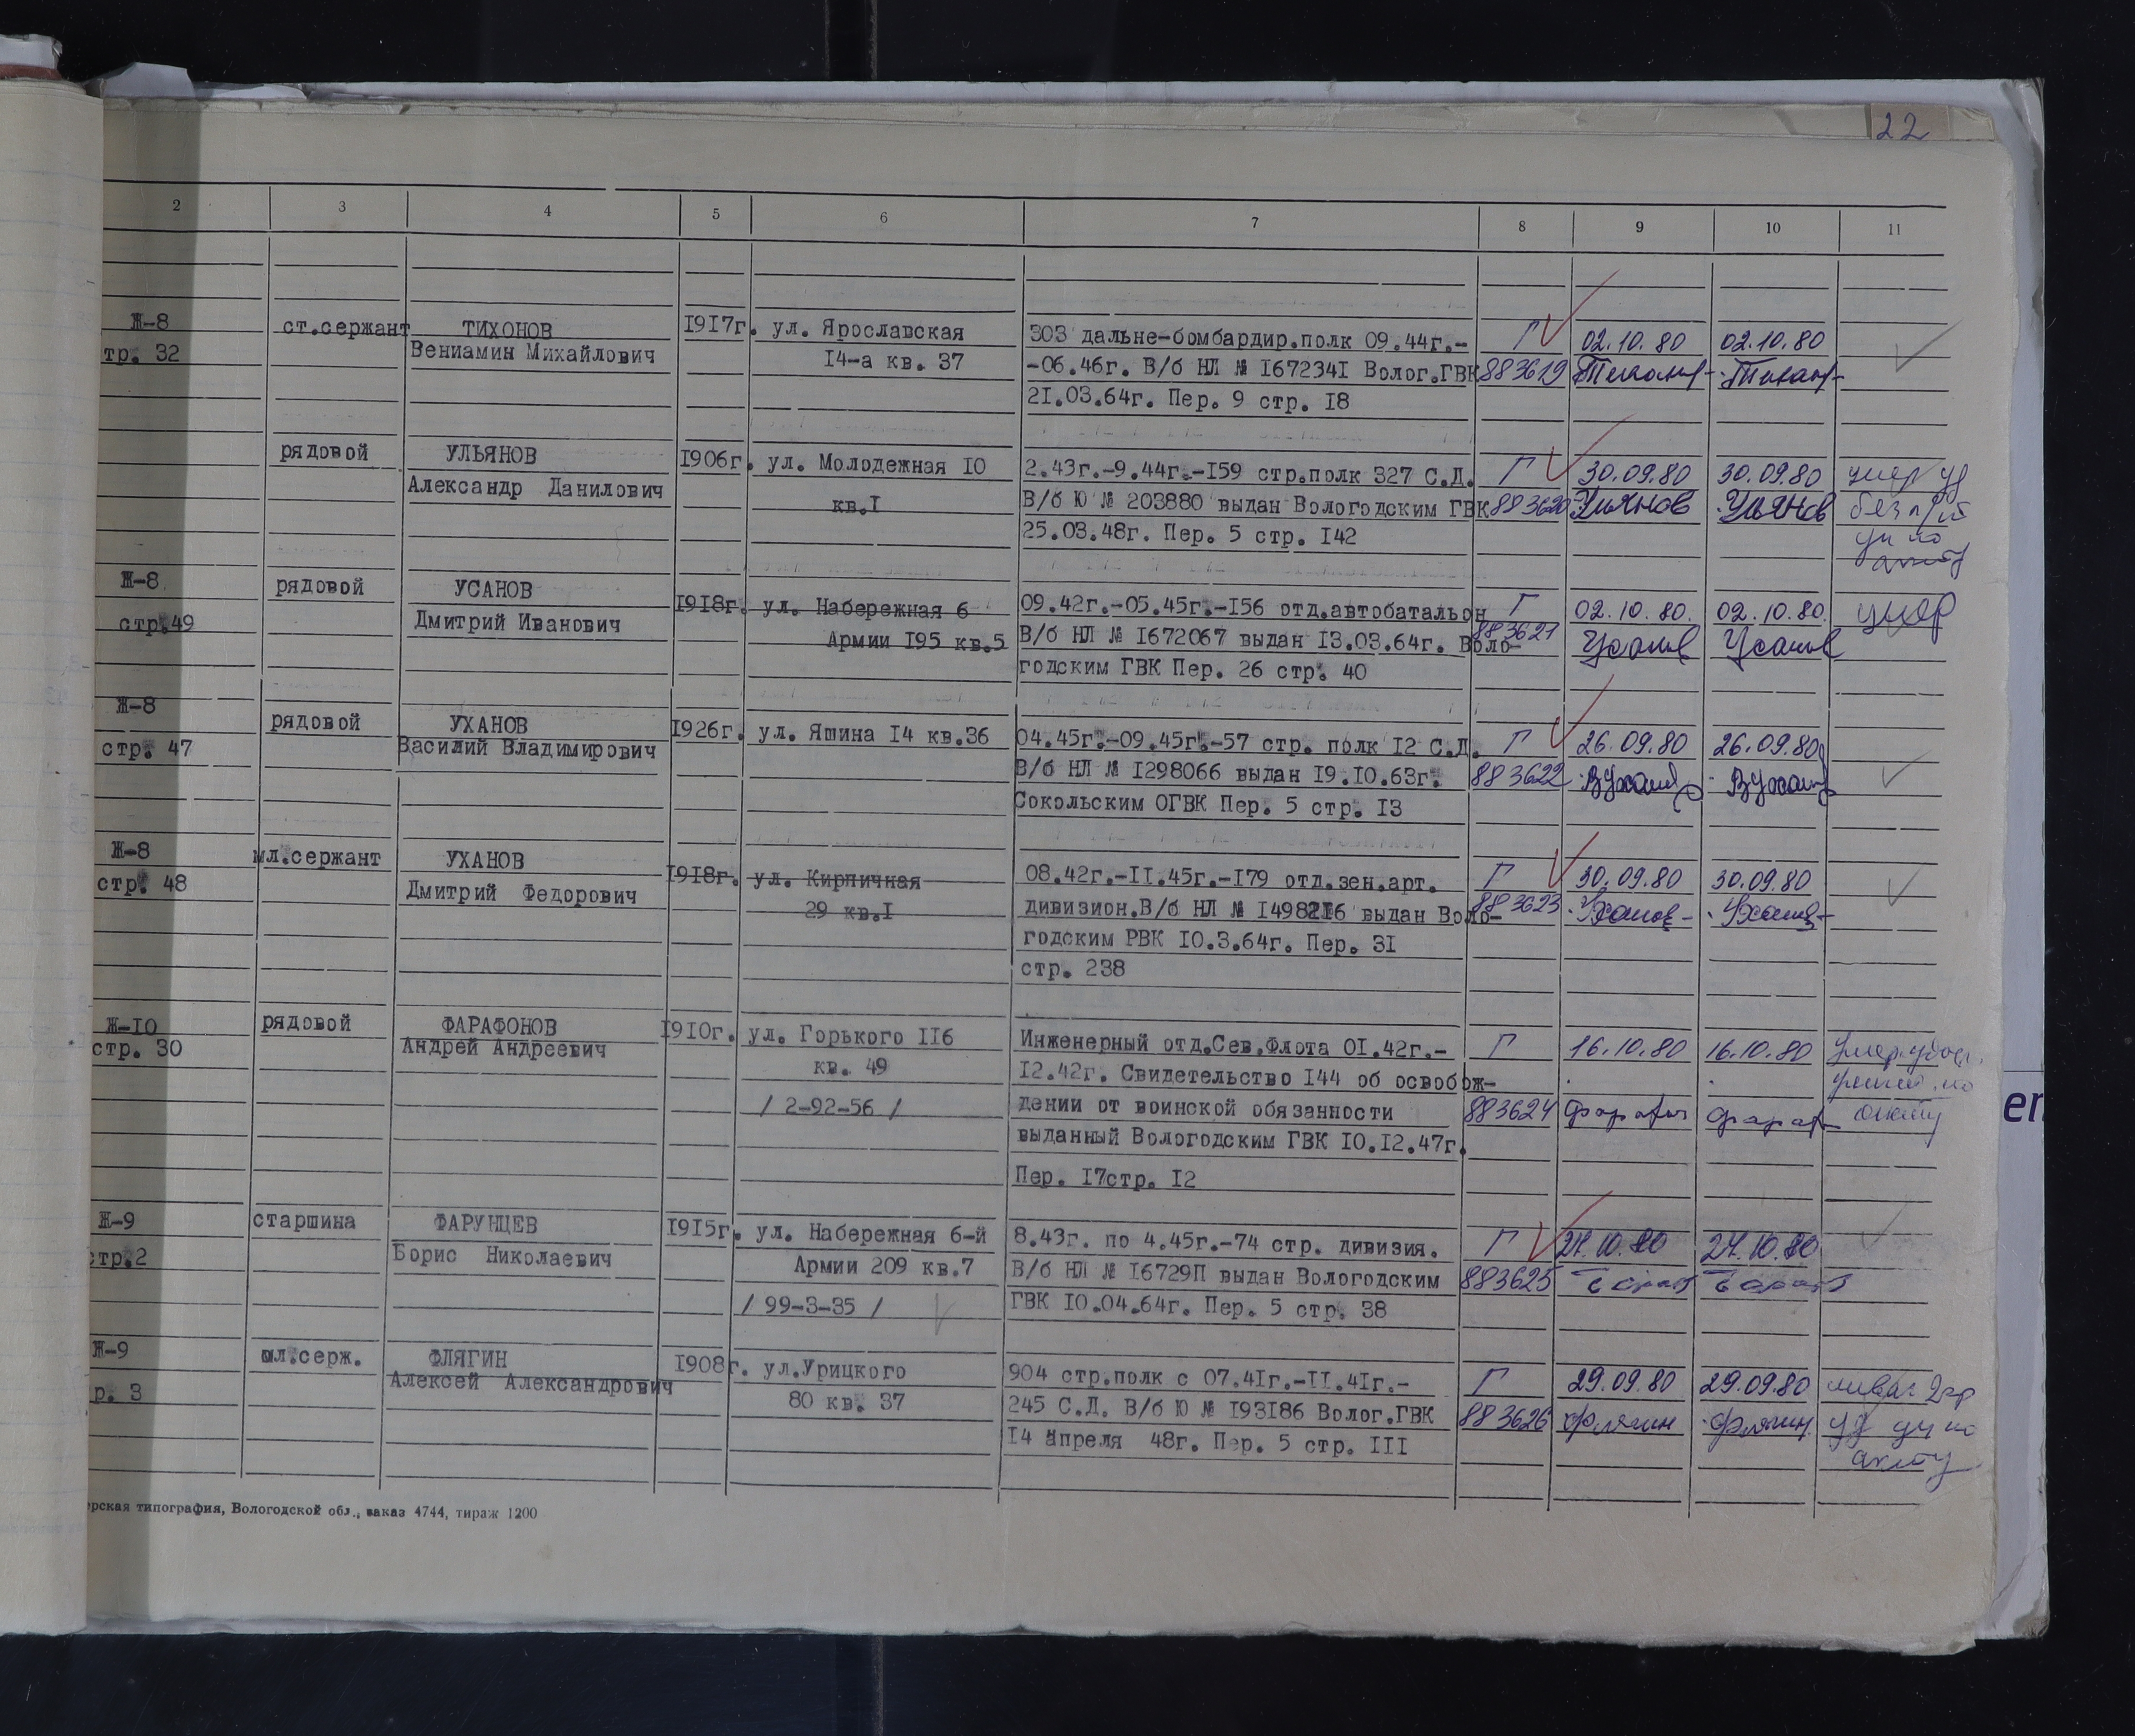 22
2 3 4 5 6 7 8 9 10 11
Ж-8 ст.сержант ТИХОНОВ 1917г. ул. Ярославская 303 дальне-бомбардир.полк 09.44г.- Г 02.10.80 02.10.80
тр. 32 Вениамин Михайлович 14-а кв. 37 -06.46г. В/б НЛ № 1672341 Волог.ГВК 883619
21.03.64г. Пер. 9 стр. 18
рядовой УЛЬЯНОВ 1906г. ул. Молодежная 10 2.43г.-9.44г.-159 стр.полк 327 С.Д. Г 30.09.80 30.09.80 умер уд
Александр Данилович кв.1 В/б Ю № 203880 выдан Вологодским ГВК 883620 Ульянов Ульянов без
25.03.48г. Пер. 5 стр. 142 ун по
акту
Ж-8 рядовой УСАНОВ 1918г. ул. Набережная 6 09.42г.-05.45г.-156 отд.автобатальон Г 02.10.80. 02.10.80. умер
стр.49 Дмитрий Иванович Армии 195 кв.5 В/б НЛ № 1672067 выдан 13.03.64г. Воло- 883621 Усанов Усанов
годским ГВК Пер. 26 стр. 40
Ж-8 рядовой УХАНОВ 1926г. ул. Яшина 14 кв.36 04.45г.-09.45г.-57 стр. полк 12 С.Д. Г 26.09.80 26.09.80
стр. 47 Василий Владимирович В/б НЛ № 1298066 выдан 19.10.63г. 883622
Сокольским ОГВК Пер. 5 стр. 13
Ж-8 мл.сержант УХАНОВ 1918г. ул. Кирпичная 08.42г.-11.45г.-179 отд.зен.арт. Г 30.09.80 30.09.80
стр. 48 Дмитрий Федорович 29 кв.1 дивизион.В/б НЛ № 1498216 выдан Воло- 883623
годским РВК 10.3.64г. Пер. 31
стр. 238
Ж-10 рядовой ФАРАФОНОВ 1910г. ул. Горького 116 Инженерный отд.Сев.Флота 01.42г.- Г 16.10.80 16.10.80
стр. 30 Андрей Андреевич кв. 49 12.42г. Свидетельство 144 об освобож-
/ 2-92-56 / дении от воинской обязанности 883624 акту
выданный Вологодским ГВК 10.12.47г.
Пер. 17стр. 12
Ж-9 старшина ФАРУНЦЕВ 1915г. ул. Набережная 6-й 8.43г. по 4.45г.-74 стр. дивизия. Г 24.10.80
стр.2 Борис Николаевич Армии 209 кв.7 В/б НЛ № 16729П выдан Вологодским 883625
/ 99-3-35 / ГВК 10.04.64г. Пер. 5 стр. 38
Ж-9 мл.серж. ФЛЯГИН 1908г. ул.Урицкого 904 стр.полк с 07.41г.-11.41г.- Г 29.09.80 29.09.80 инвал 2гр
р. 3 Алексей Александрович 80 кв. 37 245 С.Д. В/б Ю № 193186 Волог.ГВК 883626 Флягин Флягин уд ун по
14 апреля 48г. Пер. 5 стр. 111 акту
рская типография, Вологодской обл., заказ 4744, тираж 1200
en